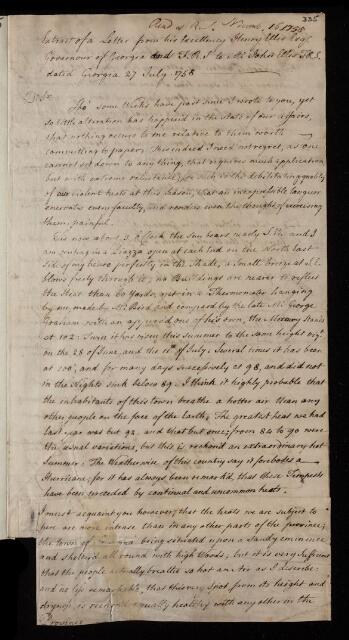 Read at R.S. Novemr. 16. 1758
335
Extract of a Letter from his Excellency Henry Ellis Esqr.
Governour of Georgia and F.R.S. to Mr. John Ellis F.R.S.
dated Georgia 27 July 1758
Dr. Sir
Tho' some Weeks have past since I wrote to you, yet
so little alteration has happend in the state of our affairs,
that nothing occurs to me relative to them worth
committing to paper. This indeed I need not regret, as one
cannot set down to any thing, that requires much application
but with extreme reluctance; for such is the debilitating quality
of our violent heats at this season, that an inexpressible languor
enervates every faculty, and renders even the thought of exercising
them, painful.
Tis now about 3 o'Clock the Sun bears nearly S.W. and I
am writing in a Piazza open at each End on the North East
side of my house perfectly in the Shade, a small Breeze at S.E.
blows freely through it; no Buildings are nearer to reflect
the Heat than 60 Yards, yet in a Thermometer hanging
by me, made by Mr. Bird and compared by the late Mr. George
Graham with an approved one of his own, the Mercury stands
at 102. Twice it has risen this summer to the same height viz.
on the 28 of June, and the 11th. of July. Several times it has been
at 100, and for many days successively at 98, and did not
in the Nights sink below 89. I think it highly probable that
the inhabitants of this town breathe a hotter air than any
other people on the face of the Earth. The greatest heat we had
last year was but 92. and that but once; from 84 to 90 were
the usual variations, but this is reckond an extraordinary hot
Summer. The Weatherwise of this country say it forebodes a
Hurricane; for it has always been remarkd, that these Tempests
have been preceded by continual and uncommon heats.
I must acquaint you however, that the heats we are subject to
here are more intense than in any other parts of the province;
the town of being situated upon a Sandy eminence
and shelterd all round with high Woods; but it is very sufficient
that the people actually breathe so hot an Air as I describe
and no less remarkable, that this very spot from its height and
dryness, is reckond equally healthy with any other in the
Province